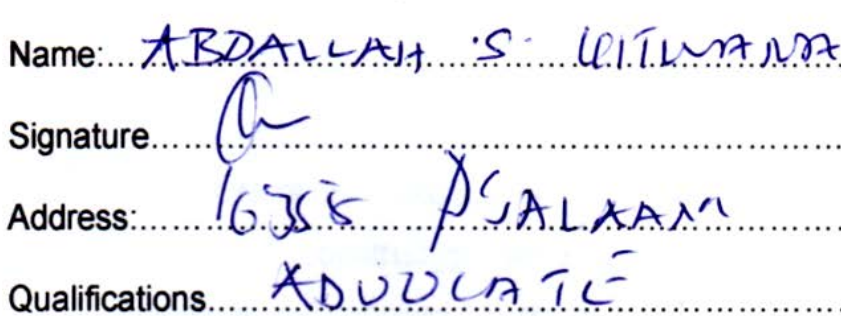 Name:...ABDALLAH .S. KITWANA
Signature
Address:......16355 D'SALAAM
Qualifications.....ADVOCATE